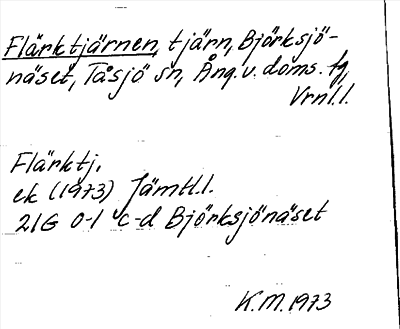 Flärktjärnen, tjärn, Björksjö-
näset, Tåsjö sn, Ång. v. doms. fg,
Vrnl.l.
Flärktj.
ek (1973) Jämtl.l.
21G 0-1 c-d Björksjönäset
K.M. 1973